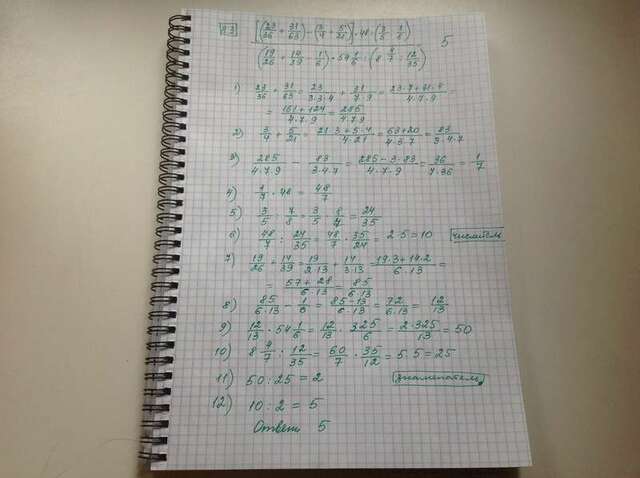 23 [(23/36 + 31/63) - (3/4 + 5/21)] · 48 : (3/5 : 7/8)
(19/26 + 14/39 - 1/6) · 54 1/6 : (8 4/7 : 12/35) 5
1) 23/36 + 31/63 = 23/3·3·4 + 31/7·9 = 23·7+31·4/4·7·9 =
= 161+124/4·7·9 = 285/4·7·9
2) 3/4 + 5/21 = 21·3+5·4/4·21 = 63+20/4·3·7 = 83/3·4·7
3) 285/4·7·9 - 83/3·4·7 = 285-3·83/4·7·9 = 36/7·36 = 1/7
4) 1/7 · 48 = 48/7
5) 3/5 : 7/8 = 3/5 · 8/7 = 24/35
6) 48/7 : 24/35 = 48/7 · 35/24 = 2·5=10 числитель
7) 19/26 + 14/39 = 19/2·13 + 14/3·13 = 19·3+14·2/6·13 =
= 57+28/6·13 = 85/6·13
8) 85/6·13 - 1/6 = 85-13/6·13 = 72/6·13 = 12/13
9) 12/13 · 54 1/6 = 12/13 · 325/6 = 2·325/13 = 50
10) 8 4/7 : 12/35 = 60/7 · 35/12 = 5·5=25
11) 50:25=2 знаменатель
12) 10:2=5
Ответ: 5